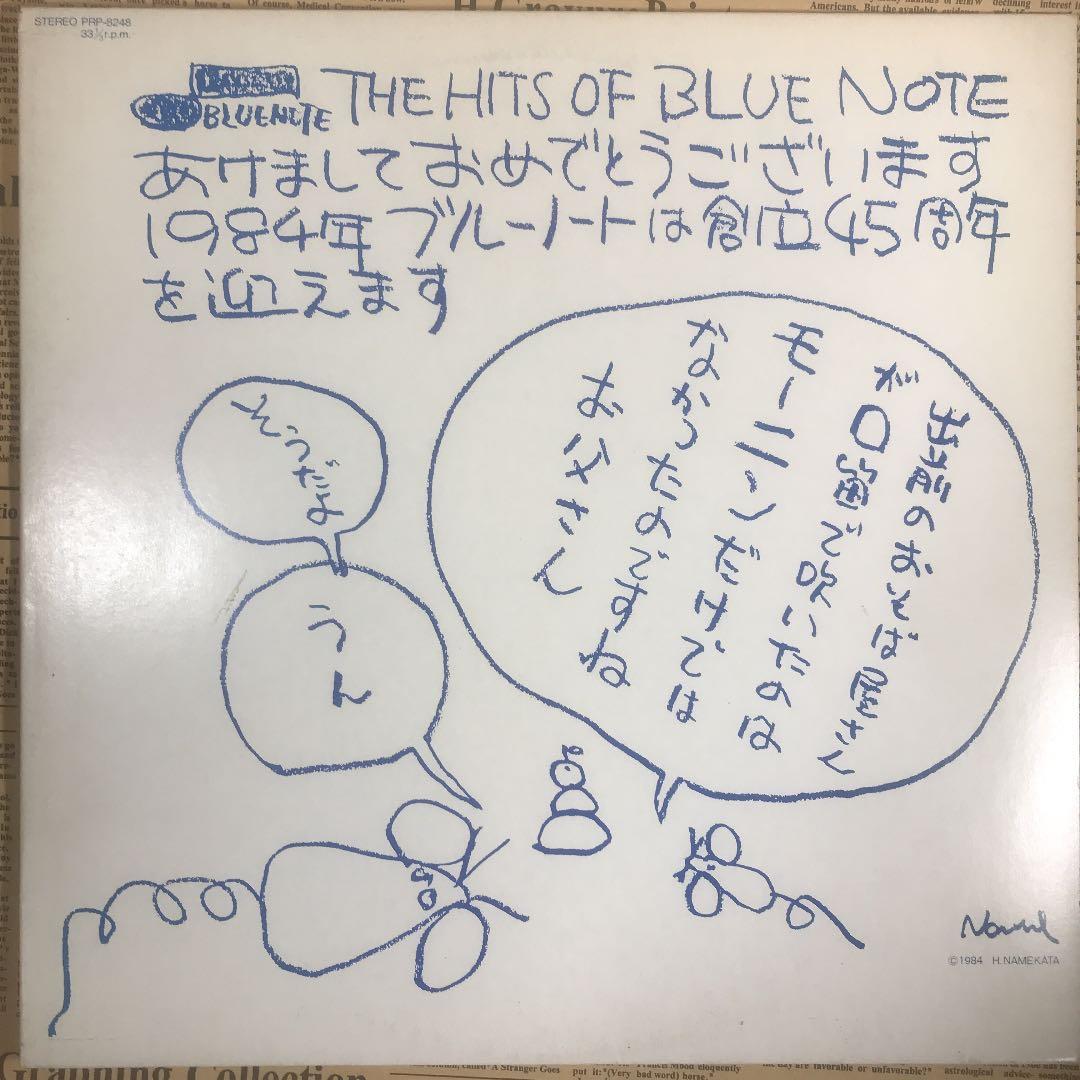 STEREO PRP-8248
33⅓r.p.m.
THE HITS OF BLUE NOTE
BLUENOTE
あけましておめでとうございます
1984年 ブルーノートは創立45周年
を迎えます
出前のおそば屋さん
が口笛で吹いたのは
モーニンだけでは
なかったのですね
お父さん
そうだよ
うん
©1984 H.NAMEKATA